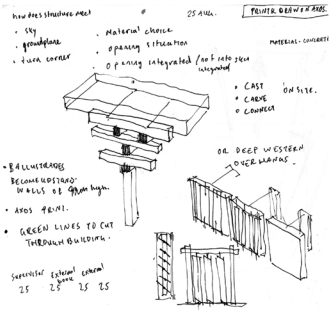 how does structure meet
• sky
• groundplane
• turn corner
• Material choice
• opening situation
• opening integrated / not into site integrated
25 AUG.
PRINT & DRAW ON AXOS.
MATERIAL: CONCRETE
• CAST
• CARVE
• CONNECT
ON SITE.
OR DEEP WESTERN
OVERHANGS.
• BALLUSTRADES
BECOME UPSTAND
WALLS OF high.
• AXOS PRINT.
• GREEN LINES TO CUT
THROUGH BUILDING.
Supervisor External External
25 25 25 25